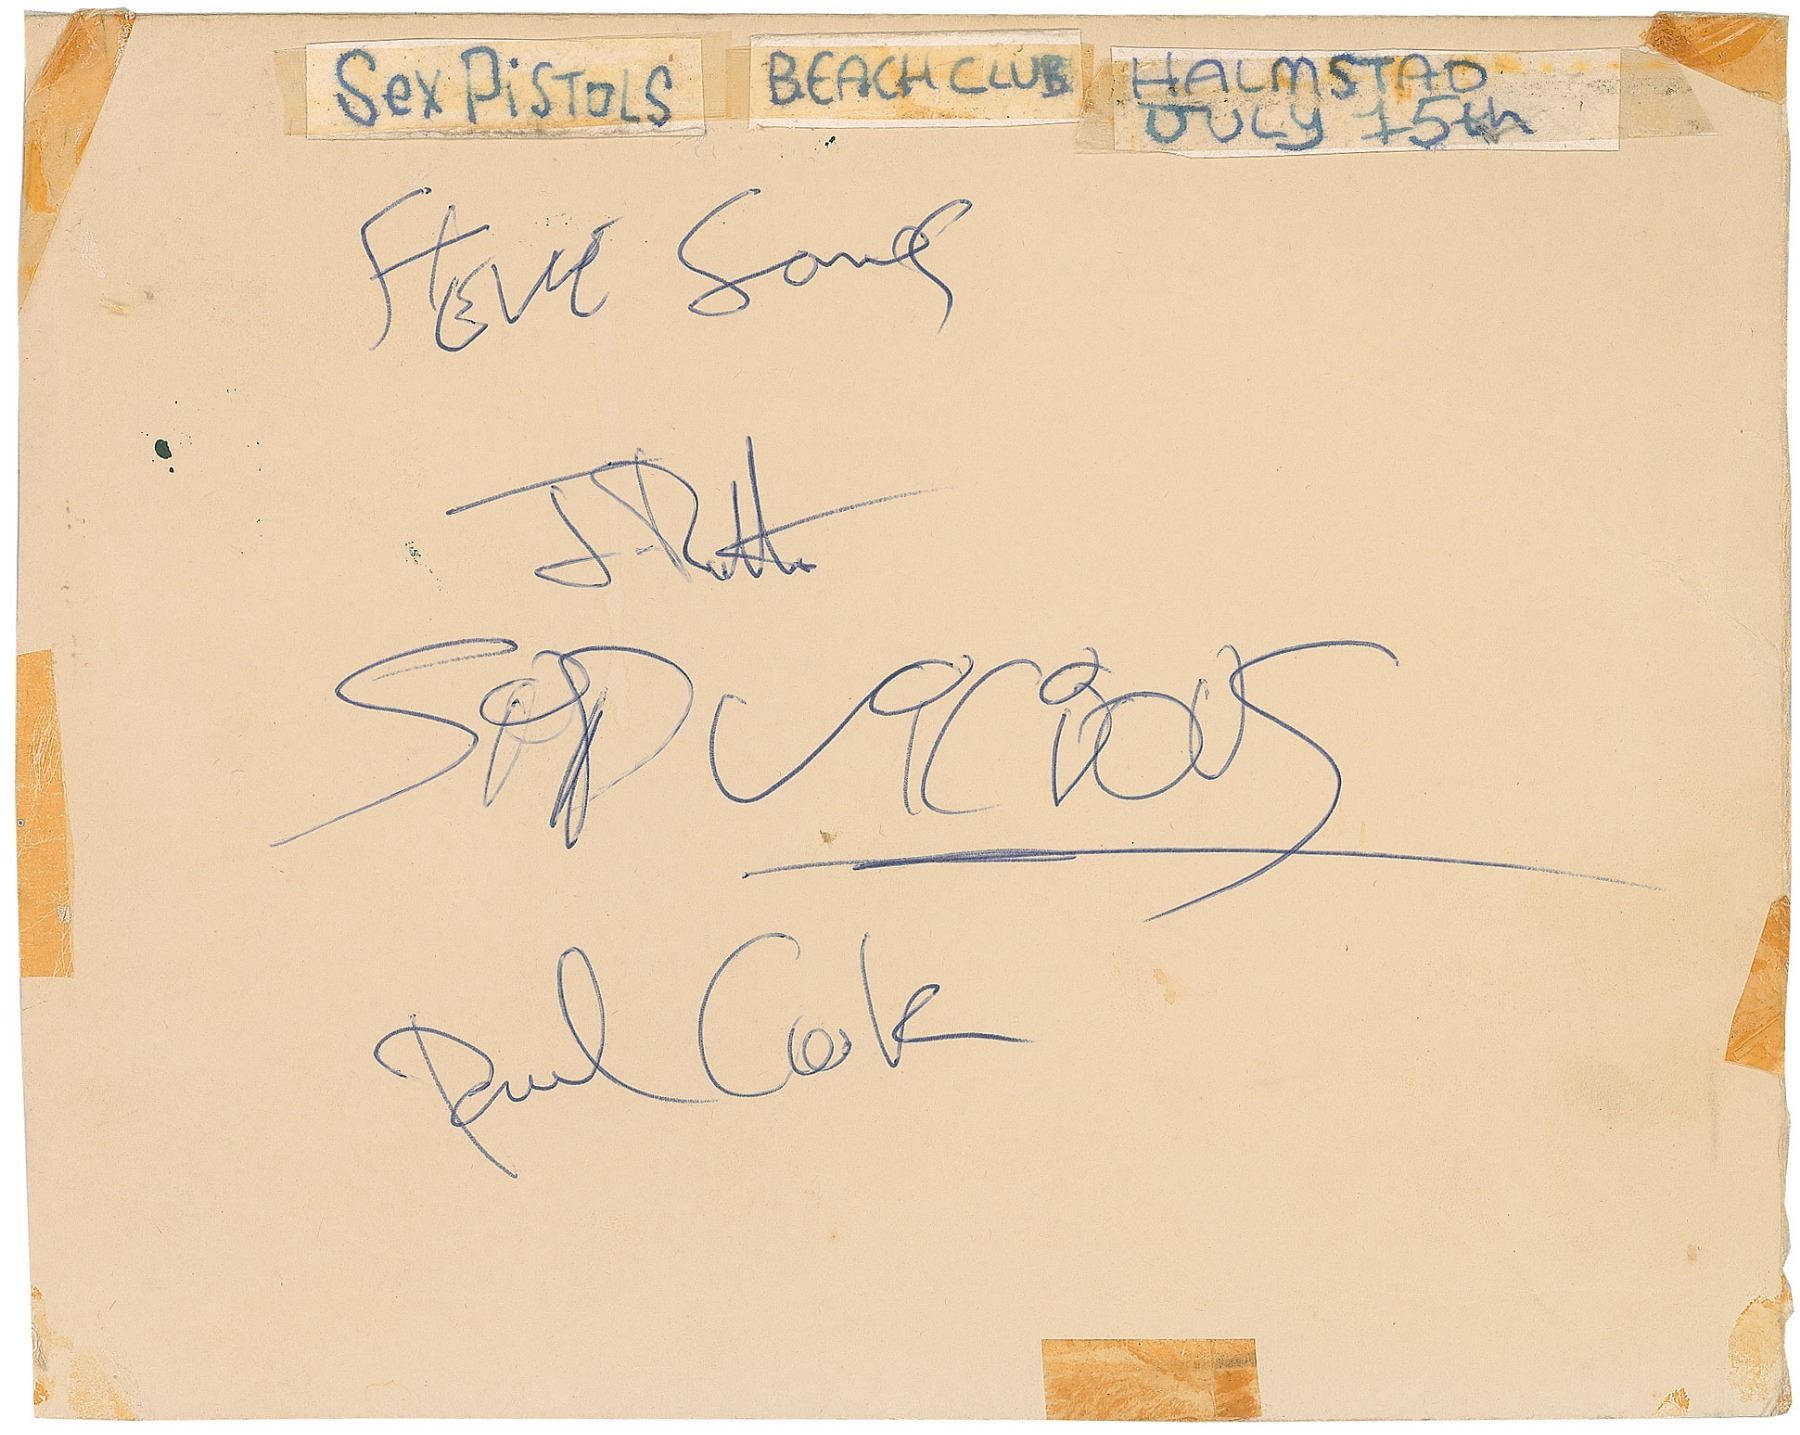 Sex Pistols BEACH CLUB HALMSTAD
JULY 15th
Steve Jones
J. Rotten
SID VICIOUS
Paul Cook